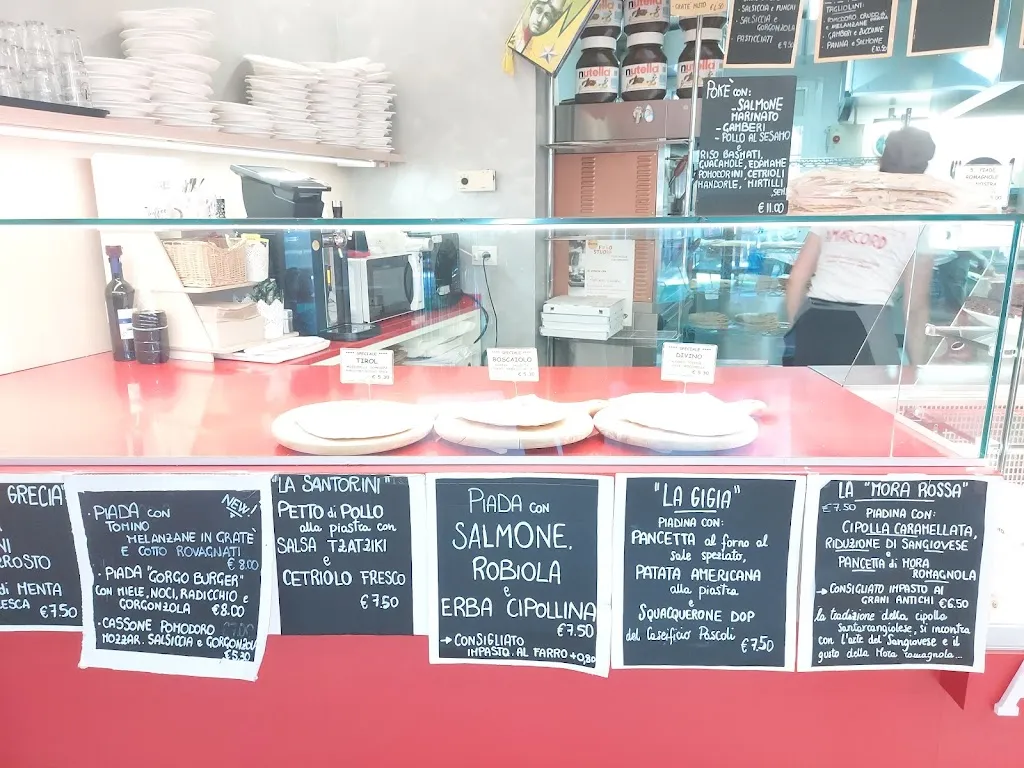 nutella
nutella
nutella
SALSICCIA e FUNGHI
SALSICCIA e
GORGONZOLA
PASTICCIATI
TAGLIOLINI:
POMODORO, CRUDO e
MELANZANE
GAMBERI e ZUCCHINE
PANNA e SALMONE
€10.50
POKÈ CON:
-SALMONE
MARINATO
-GAMBERI
-POLLO AL SESAMO
e
RISO BASMATI,
GUACAMOLE, EDAMAME
POMODORINI, CETRIOLI
MANDORLE, MIRTILLI
€11.00
AMARCORD
SPECIALE
TIROL
€
SPECIALE
BOSCAIOLO
€
SPECIALE
DIVINO
€
GRECIA
di MENTA
€7.50
NEW!
·PIADA CON
TOMINO
MELANZANE IN GRATÈ
e COTTO ROVAGNATI
€8.00
·PIADA "GORGO BURGER"
CON MIELE, NOCI, RADICCHIO e
GORGONZOLA €8.00
·CASSONE POMODORO
MOZZAR. SALSICCIA e GORGONZOLA
€5.30
"LA SANTORINI"
PETTO di POLLO
alla piastra con
SALSA TZATZIKI
e
CETRIOLO FRESCO
€7.50
PIADA CON
SALMONE,
ROBIOLA
e
ERBA CIPOLLINA
€7.50
→ CONSIGLIATO
IMPASTO AL FARRO +0,80
"LA GIGIA"
PIADINA CON:
PANCETTA al forno al
sale speziato,
PATATA AMERICANA
alla piastra
e
SQUACQUERONE DOP
del Caseificio Pascoli
€7,50
LA "MORA ROSSA"
€7.50
PIADINA CON:
CIPOLLA CARAMELLATA,
RIDUZIONE DI SANGIOVESE
e
PANCETTA di MORA
ROMAGNOLA
→ CONSIGLIATO IMPASTO AI
GRANI ANTICHI €6.50
la tradizione della cipolla
santarcangiolese, si incontra
con l'arte del Sangiovese e il
gusto della Mora romagnola...